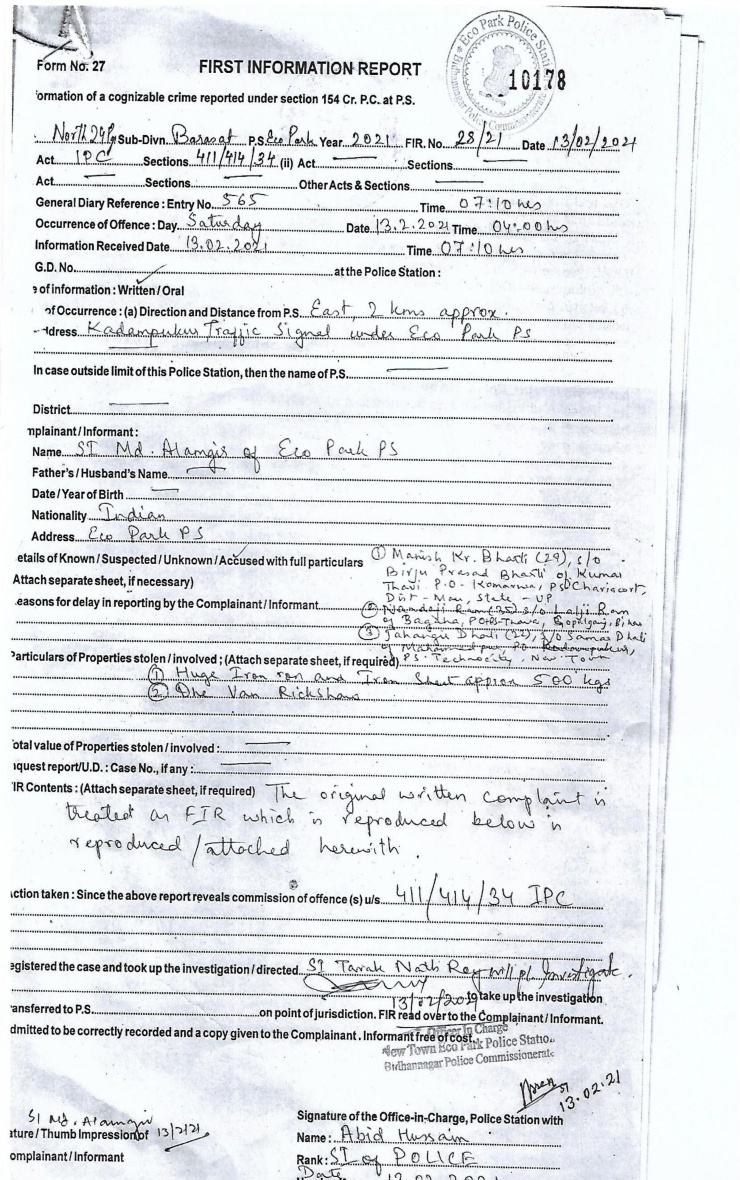 Eco Park Police Stati
Bidhannagar Police Commissionerate
Form No. 27 FIRST INFORMATION REPORT 10178
ormation of a cognizable crime reported under section 154 Cr. P.C. at P.S.
North 24 Pgs Sub-Divn. Barasat P.S. Eco Park Year 2021 FIR. No. 28/21 Date 13/02/2021
Act IPC Sections 411/414/34 (ii) Act Sections
Act Sections Other Acts & Sections
General Diary Reference : Entry No. 565 Time 07:10 hrs
Occurrence of Offence : Day Saturday Date 13.2.2021 Time 04:00 hrs
Information Received Date 13.02.2021 Time 07:10 hrs
G.D. No. at the Police Station :
e of information : Written / Oral
of Occurrence : (a) Direction and Distance from P.S. East, 2 kms approx.
ddress Kadampukur Traffic Signal under Eco Park PS
In case outside limit of this Police Station, then the name of P.S.
District
mplainant / Informant :
Name SI Md. Alamgir of Eco Park PS
Father's / Husband's Name
Date / Year of Birth
Nationality Indian
Address Eco Park PS
etails of Known / Suspected / Unknown / Accused with full particulars ① Manish Kr. Bharti (29), s/o
Birju Prasad Bharti of Kumar
Attach separate sheet, if necessary) Thavi P.O - Kamarwa, PS Chariacort,
Dist - Mau, State - UP
easons for delay in reporting by the Complainant / Informant ② Namdaji Ram (35) s/o Lalji Ram
of Bagaha, PO+PS-Thave, Gopalganj, Bihar
③ Jahangir Dhali (22), s/o Samad Dhali
of PO Kadampukur,
Particulars of Properties stolen / involved ; (Attach separate sheet, if required) PS. Technocity, New Town
① Huge Iron rod and Iron Sheet approx 500 kgs
② One Van Rickshaw
otal value of Properties stolen / involved :
quest report/U.D. : Case No., if any :
IR Contents : (Attach separate sheet, if required) The original written complaint is
treated as FIR which is reproduced below is
reproduced / attached herewith.
ction taken : Since the above report reveals commission of offence (s) u/s 411/414/34 IPC
egistered the case and took up the investigation / directed SI Tarak Nath Roy will pl. Investigate.
13/02/2021 to take up the investigation
ransferred to P.S. on point of jurisdiction. FIR read over to the Complainant / Informant.
dmitted to be correctly recorded and a copy given to the Complainant . Informant free of cost.
Officer In Charge
New Town Eco Park Police Station
Bidhannagar Police Commissionerate
SI
13.02.21
SI Md. Alamgir
13/2/21
ature / Thumb Impression of
omplainant / Informant
Signature of the Office-in-Charge, Police Station with
Name : Abid Hussain
Rank : SI of POLICE
Date